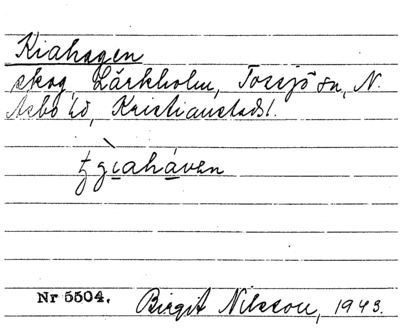 Kiahagen
skog, Lärkholm, Torsjö sn, N.
Åsbo hd, Kristianstads l.
Nr 5504. Birgit Nilsson, 1943.